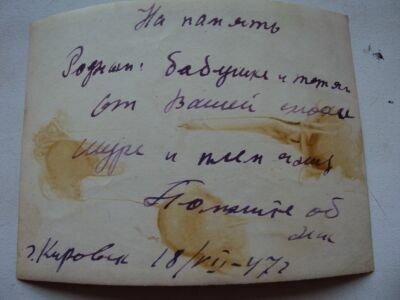 На память
Родным: бабушке и тетям
От Вашей
и племянниц
Помните об
г. Кировск 18/VII-47г